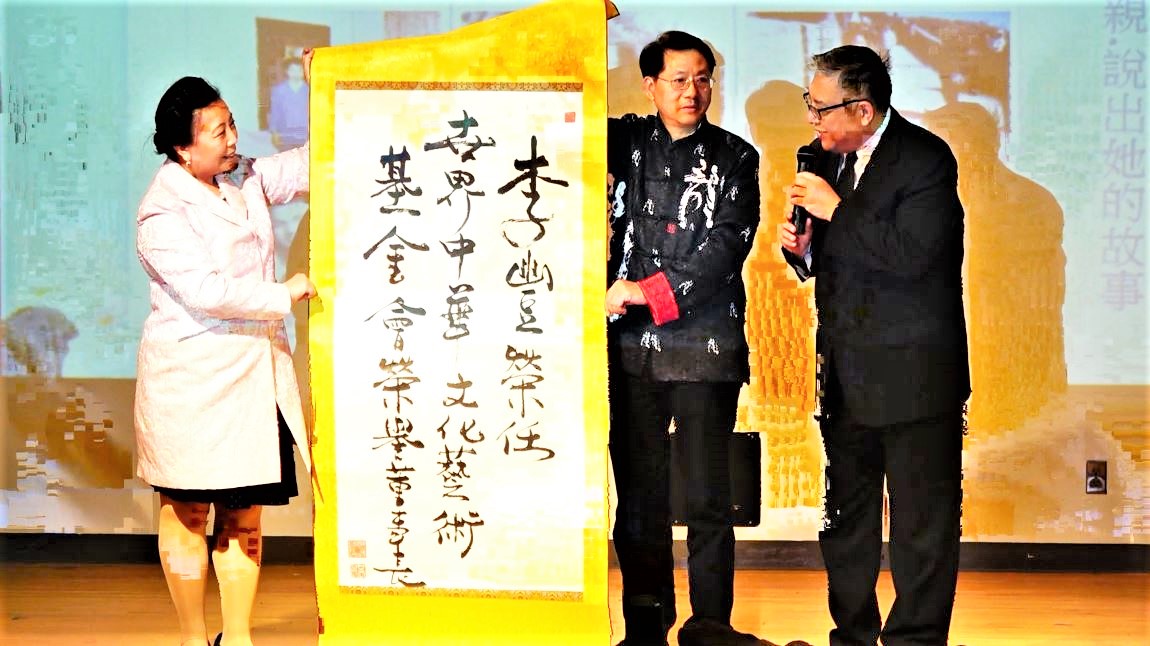 親·說出她的故事
李子豐榮任
世界中華文化藝術
基金會榮譽董事長
龍